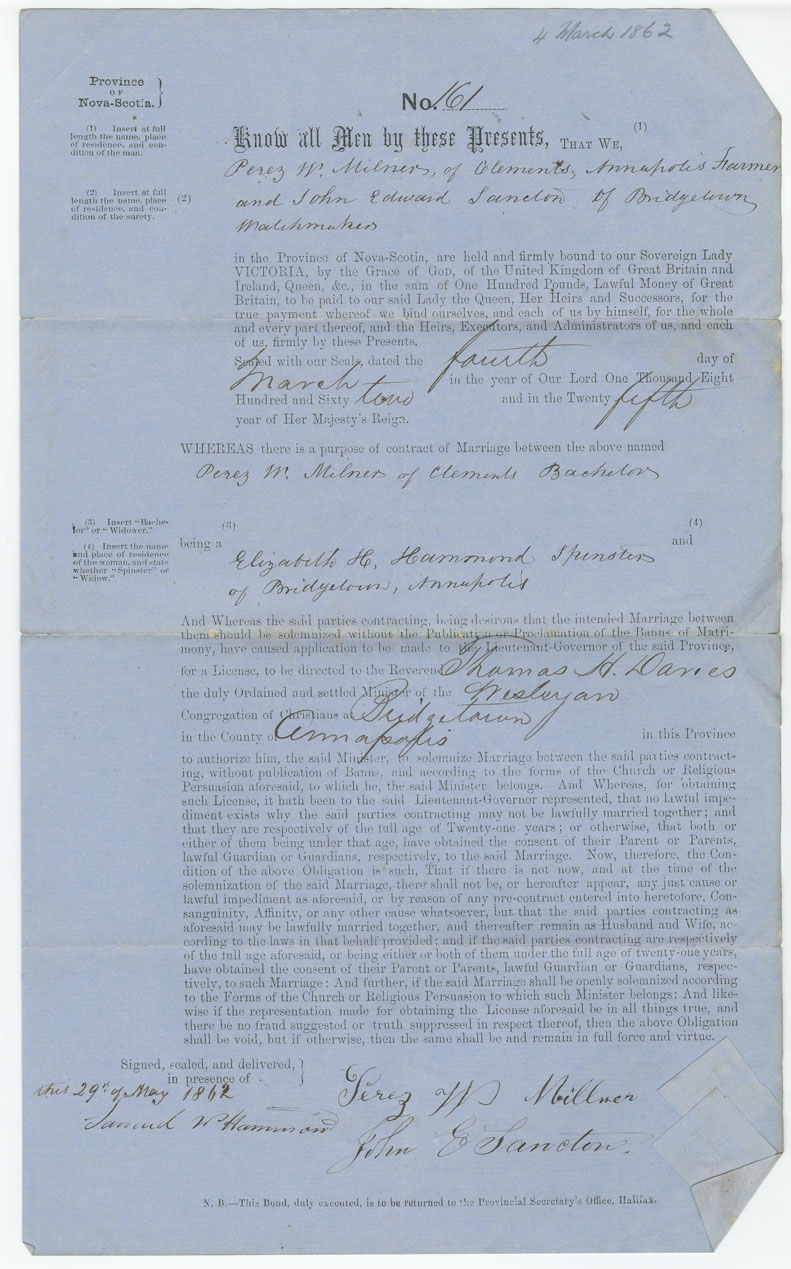 4 March 1862
Province
OF
Nova-Scotia.
No. 161
(1) Insert at full
length the name, place
of residence, and con-
dition of the man.
Know all Men by these Presents, THAT WE, (1)
Perez W. Milner, of Clements, Annapolis Farmer
(2) Insert at full
length the name, place
of residence, and con-
dition of the surety.
(2) and John Edward Sancton of Bridgetown
Watchmaker
in the Province of Nova-Scotia, are held and firmly bound to our Sovereign Lady
VICTORIA, by the Grace of GOD, of the United Kingdom of Great Britain and
Ireland, Queen, &c., in the sum of One Hundred Pounds, Lawful Money of Great
Britain, to be paid to our said Lady the Queen, Her Heirs and Successors, for the
true payment whereof we bind ourselves, and each of us by himself, for the whole
and every part thereof, and the Heirs, Executors, and Administrators of us, and each
of us, firmly by these Presents.
Sealed with our Seals, dated the fourth day of
March in the year of Our Lord One Thousand Eight
Hundred and Sixty two and in the Twenty fifth
year of Her Majesty's Reign.
WHEREAS there is a purpose of contract of Marriage between the above named
Perez W. Milner of Clements Bachelor
(3) Insert "Bache-
lor" or "Widower."
(4) Insert the name
and place of residence
of the woman, and state
whether "Spinster" or
"Widow."
(3) (4)
being a and
Elizabeth H. Hammond Spinster
of Bridgetown, Annapolis
And Whereas the said parties contracting, being desirous that the intended Marriage between
them should be solemnized without the Publication or Proclamation of the Banns of Matri-
mony, have caused application to be made to the Lieutenant-Governor of the said Province,
for a License, to be directed to the Reverend Thomas H. Davies
the duly Ordained and settled Minister of the Wesleyan
Congregation of Christians at Bridgetown
in the County of Annapolis in this Province
to authorize him, the said Minister, to solemnize Marriage between the said parties contract-
ing, without publication of Banns, and according to the forms of the Church or Religious
Persuasion aforesaid, to which he, the said Minister belongs. And Whereas, for obtaining
such License, it hath been to the said Lieutenant-Governor represented, that no lawful impe-
diment exists why the said parties contracting may not be lawfully married together; and
that they are respectively of the full age of Twenty-one years; or otherwise, that both or
either of them being under that age, have obtained the consent of their Parent or Parents,
lawful Guardian or Guardians, respectively, to the said Marriage. Now, therefore, the Con-
dition of the above Obligation is such, That if there is not now, and at the time of the
solemnization of the said Marriage, there shall not be, or hereafter appear, any just cause or
lawful impediment as aforesaid, or by reason of any pre-contract entered into heretofore, Con-
sanguinity, Affinity, or any other cause whatsoever, but that the said parties contracting as
aforesaid may be lawfully married together, and thereafter remain as Husband and Wife, ac-
cording to the laws in that behalf provided; and if the said parties contracting are respectively
of the full age aforesaid, or being either or both of them under the full age of twenty-one years,
have obtained the consent of their Parent or Parents, lawful Guardian or Guardians, respec-
tively, to such Marriage: And further, if the said Marriage shall be openly solemnized according
to the Forms of the Church or Religious Persuasion to which such Minister belongs: And like-
wise if the representation made for obtaining the License aforesaid be in all things true, and
there be no fraud suggested or truth suppressed in respect thereof, then the above Obligation
shall be void, but if otherwise, then the same shall be and remain in full force and virtue.
Signed, sealed, and delivered,
in presence of
this 29th of May 1862
Perez W Millner
Samuel W Hammond
John E Sancton.
N. B.—This Bond, duly executed, is to be returned to the Provincial Secretary's Office, Halifax.